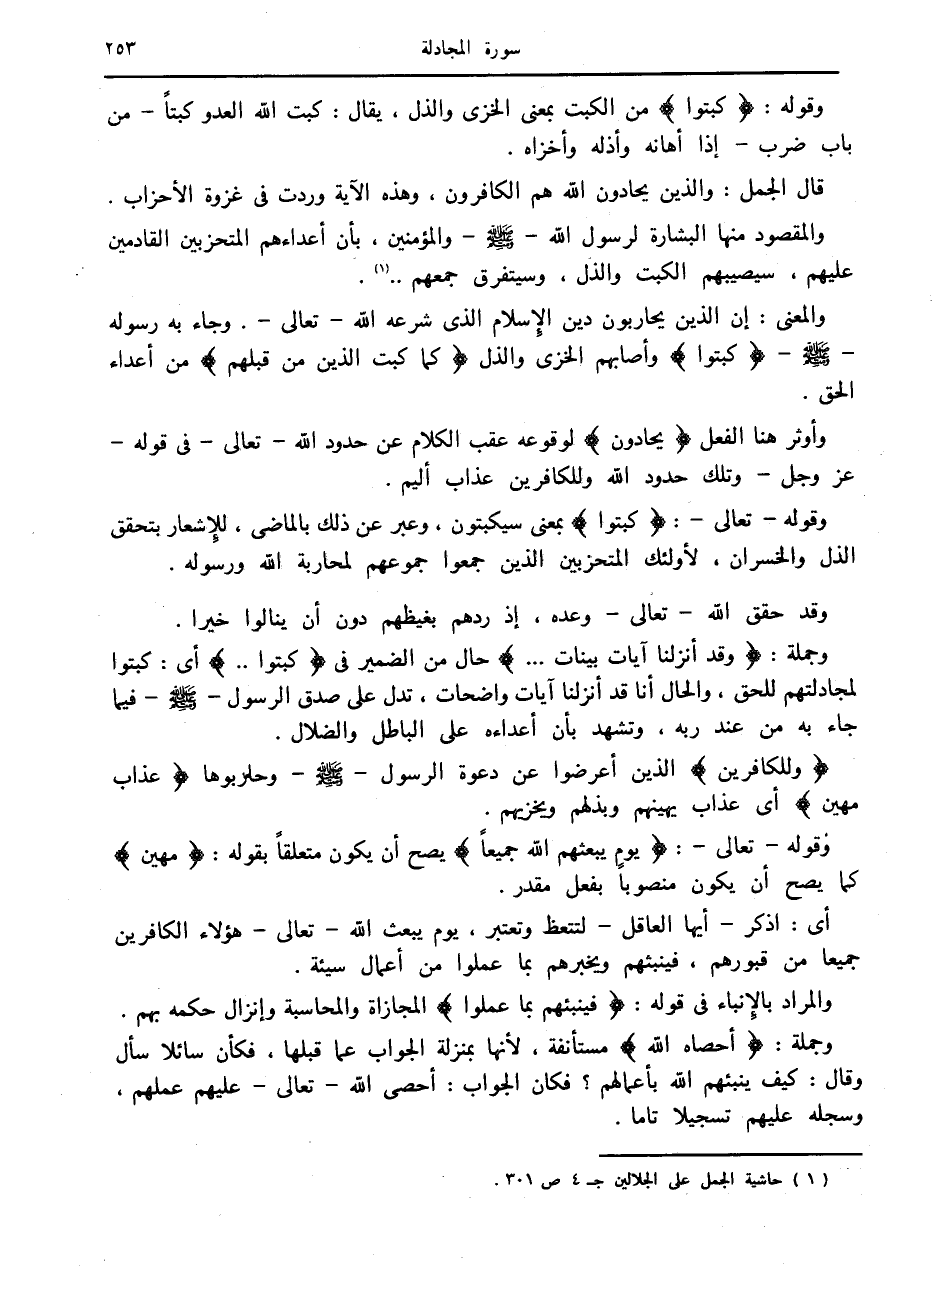 سورة المجادلة ٢٥٣
وقوله : ﴿ كبتوا ﴾ من الكبت بمعنى الخزى والذل ، يقال : كبت الله العدو كبتاً – من
باب ضرب – إذا أهانه وأذله وأخزاه .
قال الجمل : والذين يحادون الله هم الكافرون ، وهذه الآية وردت فى غزوة الأحزاب .
والمقصود منها البشارة لرسول الله – ﷺ – والمؤمنين ، بأن أعداءهم المتحزبين القادمين
عليهم ، سيصيبهم الكبت والذل ، وسيتفرق جمعهم ..(١) .
والمعنى : إن الذين يحاربون دين الإسلام الذى شرعه الله – تعالى – . وجاء به رسوله
– ﷺ – ﴿ كبتوا ﴾ وأصابهم الخزى والذل ﴿ كما كبت الذين من قبلهم ﴾ من أعداء
الحق .
وأوثر هنا الفعل ﴿ يحادون ﴾ لوقوعه عقب الكلام عن حدود الله – تعالى – فى قوله –
عز وجل – وتلك حدود الله وللكافرين عذاب أليم .
وقوله – تعالى – : ﴿ كبتوا ﴾ بمعنى سيكبتون ، وعبر عن ذلك بالماضى ، للإشعار بتحقق
الذل والخسران ، لأولئك المتحزبين الذين جمعوا جموعهم لمحاربة الله ورسوله .
وقد حقق الله – تعالى – وعده ، إذ ردهم بغيظهم دون أن ينالوا خيرا .
وجملة : ﴿ وقد أنزلنا آيات بينات ... ﴾ حال من الضمير فى ﴿ كبتوا .. ﴾ أى : كبتوا
لمجادلتهم للحق ، والحال أنا قد أنزلنا آيات واضحات ، تدل على صدق الرسول – ﷺ – فيما
جاء به من عند ربه ، وتشهد بأن أعداءه على الباطل والضلال .
﴿ وللكافرين ﴾ الذين أعرضوا عن دعوة الرسول – ﷺ – وحاربوها ﴿ عذاب
مهين ﴾ أى عذاب يهينهم ويذلهم ويخزيهم .
وقوله – تعالى – : ﴿ يوم يبعثهم الله جميعاً ﴾ يصح أن يكون متعلقاً بقوله : ﴿ مهين ﴾
كما يصح أن يكون منصوباً بفعل مقدر .
أى : اذكر – أيها العاقل – لتتعظ وتعتبر ، يوم يبعث الله – تعالى – هؤلاء الكافرين
جميعا من قبورهم ، فينبئهم ويخبرهم بما عملوا من أعمال سيئة .
والمراد بالإنباء فى قوله : ﴿ فينبئهم بما عملوا ﴾ المجازاة والمحاسبة وإنزال حكمه بهم .
وجملة : ﴿ أحصاه الله ﴾ مستأنفة ، لأنها بمنزلة الجواب عما قبلها ، فكأن سائلا سأل
وقال : كيف ينبئهم الله بأعمالهم ؟ فكان الجواب : أحصى الله – تعالى – عليهم عملهم ،
وسجله عليهم تسجيلا تاما .
( ١ ) حاشية الجمل على الجلالين جـ ٤ ص ٣٠١ .